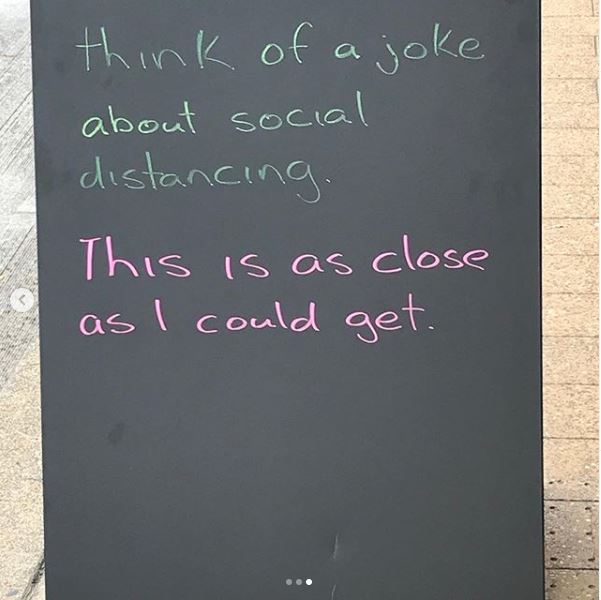 think of a joke
about social
distancing.
This is as close
as I could get.